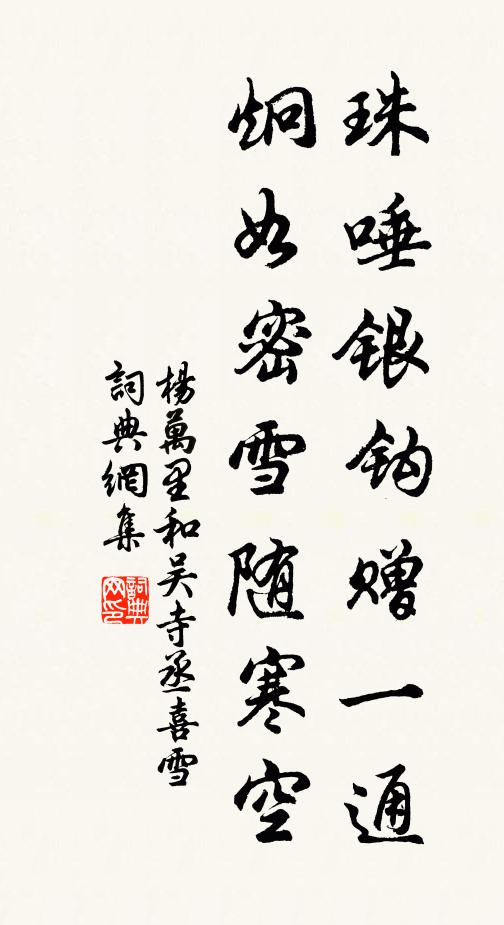 珠唾银钩赠一通
炯如密雪随寒空
楊萬里和吴寺丞喜雪
詞典網集
詞典网印